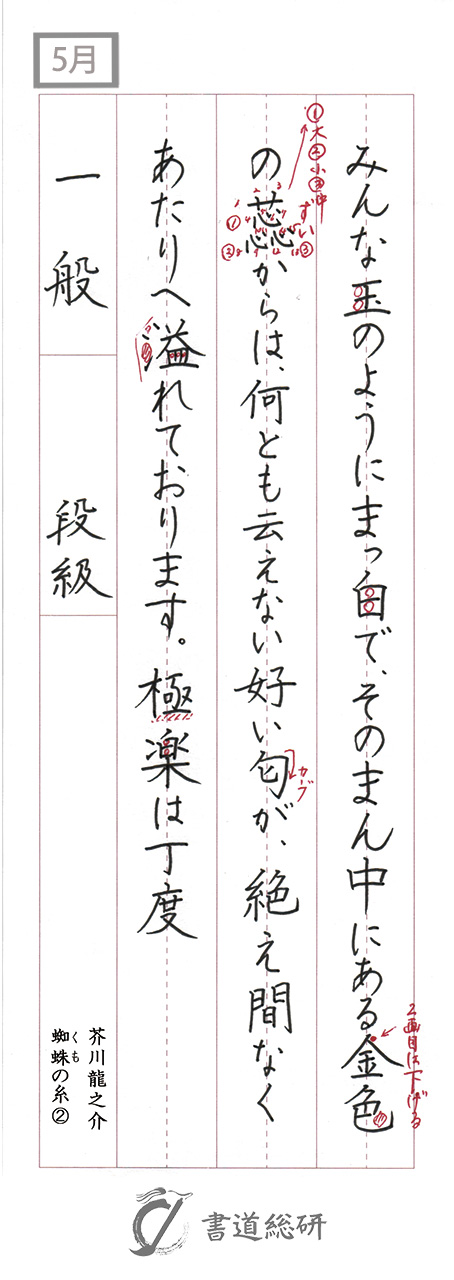 5月
みんな玉のようにまっ白で、そのまん中にある金色
2画目は下げる
①大②小③中
ずい
①
②
③
の蕊からは、何とも云えない好い匂が、絶え間なく
カーブ
あたりへ溢れております。極楽は丁度
一般
段級
芥川龍之介
蜘蛛の糸②
くも
書道総研